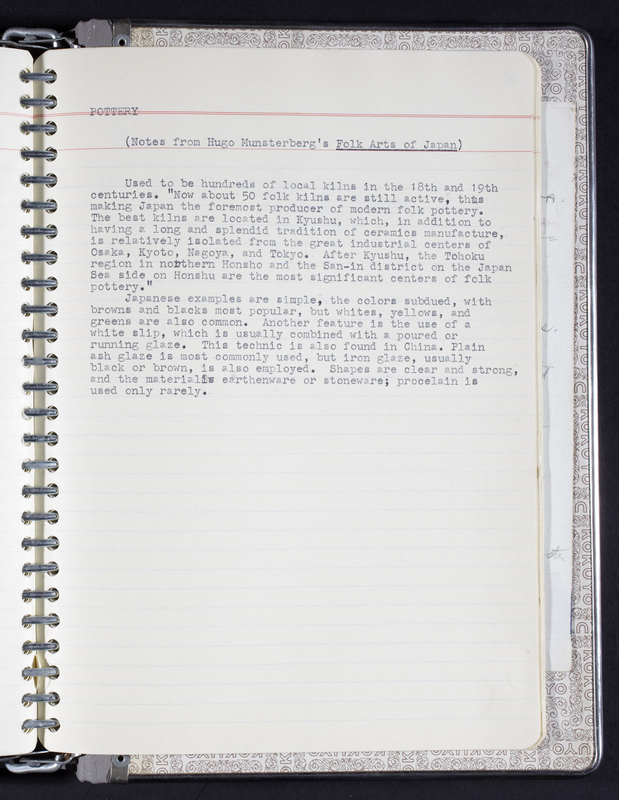 POTTERY
(Notes from Hugo Munsterberg's Folk Arts of Japan)
Used to be hundreds of local kilns in the 18th and 19th
centuries. "Now about 50 folk kilns are still active, thus
making Japan the foremost producer of modern folk pottery.
The best kilns are located in Kyushu, which, in addition to
having a long and splendid tradition of ceramics manufacture,
is relatively isolated from the great industrial centers of
Osaka, Kyoto, Nagoya, and Tokyo. After Kyushu, the Tohoku
region in northern Honsho and the San-in district on the Japan
Sea side on Honshu are the most significant centers of folk
pottery."
Japanese examples are simple, the colors subdued, with
browns and blacks most popular, but whites, yellows, and
greens are also common. Another feature is the use of a
white slip, which is usually combined with a poured or
running glaze. This technic is also found in China. Plain
ash glaze is most commonly used, but iron glaze, usually
black or brown, is also employed. Shapes are clear and strong,
and the material is earthenware or stoneware; procelain is
used only rarely.
KOKUYO